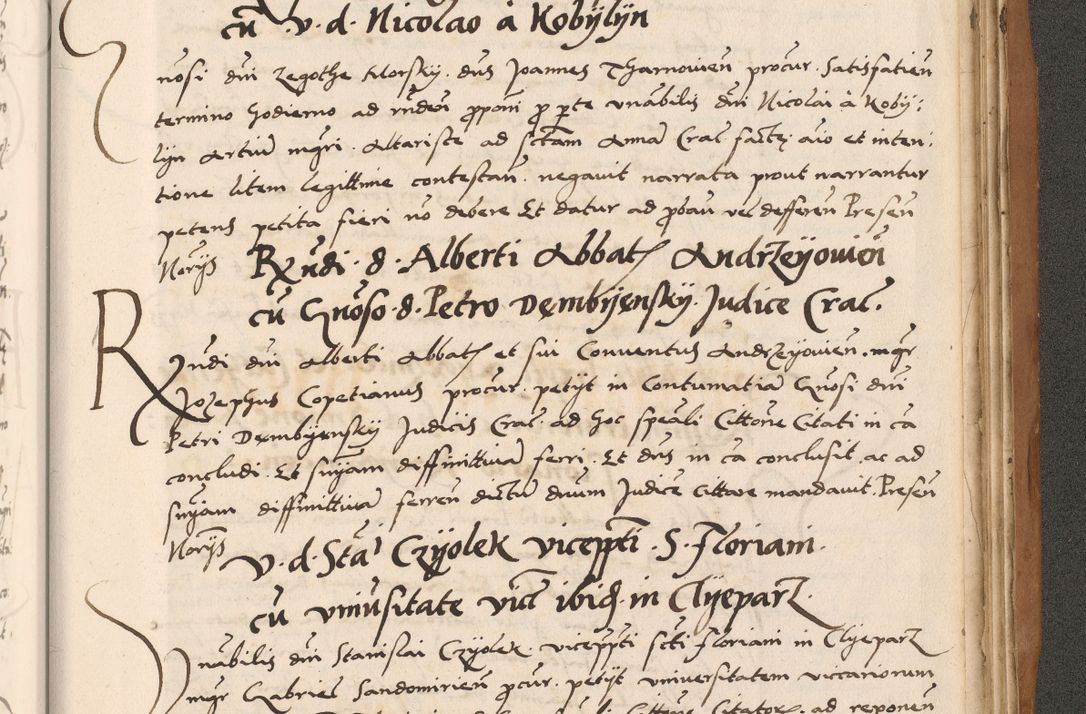 cũ v. d. Nicolao à Kobÿlÿn
nosi dni Zegothe Morskÿ. dns Joannes Tharnowien procur. Satisfatien
termino hodierno ad rndẽn ppoñi p pte vnabilis dni Nicolai à Kobÿ:
lÿn Artiũ mgri. Altariste ad sctam Annã Crac factẹ aio et inten:
tione litem legittime contestan. negavit narrata prout narrantur
petens petita fieri nõ debere Et datur ad pbañ vel defferen Presen
Norÿs
Rṽndi. d. Alberti Abbatꝭ Andrzeÿowień
cũ Gnõso. d. Petro Dembÿenskÿ. Judice Crac.
Rṽndi dni Alberti Abbatꝭ et sui Conventus Andrzeÿowien. mgr
Jozephus Copetianus procur. petÿt in Contumatiã Gnosi dni
Petri Dembÿenskÿ Judicis Crac. ad hoc speali Cittone Citati in ca
concludi. Et sniam diffinittivã ferri. Et dns in ca conclusit. ac ad
sniam diffinittivã ferren dictũ dnum Judicẽ cittare mandavit. Presen
Norÿs
V. d. Sta Czÿolek viceppti. S. Floriani.
cũ vniũsitate vict ibid. in Clÿeparz.
nabilis dni Stanislai Czÿolek. viceppti scti Floriani in Clÿeparz
mgr Gabriel Sandomirien pcur. petÿt vniversitatem viccariorum
Cittone Citatorꝭ. ad reponen